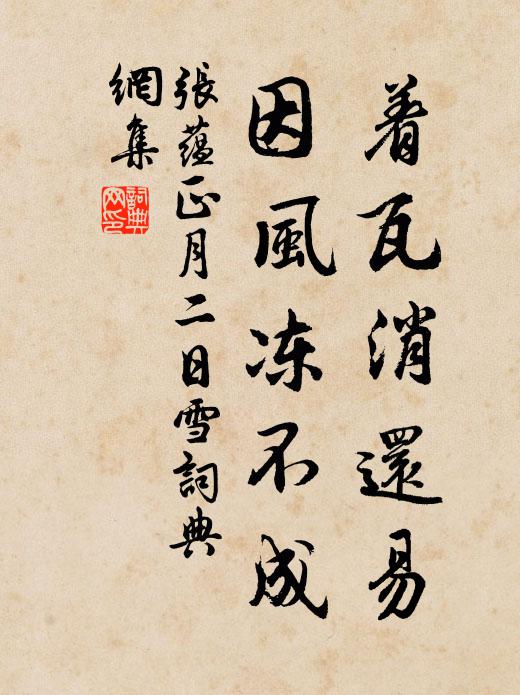 着瓦消還易
因風冻不成
張蘊正月二日雪詞典
網集
詞典
网印